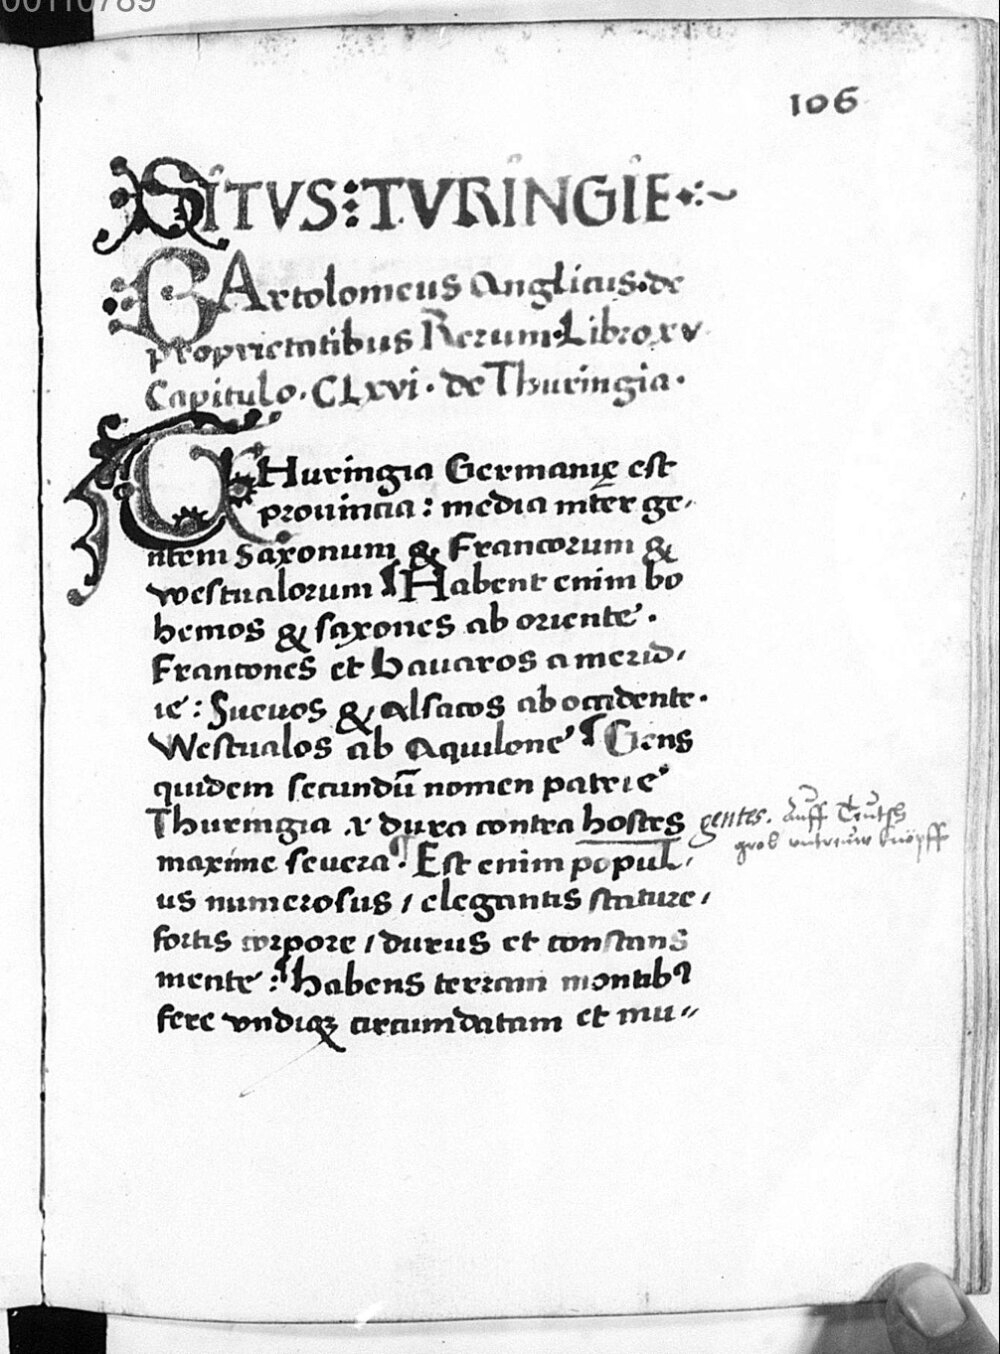 00110789
106
SITVS : TVRINGIE
BArtolomeus Anglicus . de
proprietatibus Rerum . Libro xv
Capitulo . CLxvi . de Thuringia .
THuringia Germanię est
prouincia : media inter ge,
ntem Saxonum & Francorum &
westualorum ¶ Habent enim bo
hemos & saxones ab oriente .
Francones et bauaros a merid,
ie : Sueuos & Alsacos ab occidente .
Westualos ab Aquilone ¶ Gens
quidem secundū nomen patrie
Thuringia . r dura contra hostes gentes . Auff Teutsch
grob vntreuw knöpff
maxime seuera . ¶ Est enim popul,
us numerosus / elegantis stature /
fortis corpore / durus et constans
mente : ¶ habens terram montibꝰ
fere vndiqꝫ circumdatam et mu〃